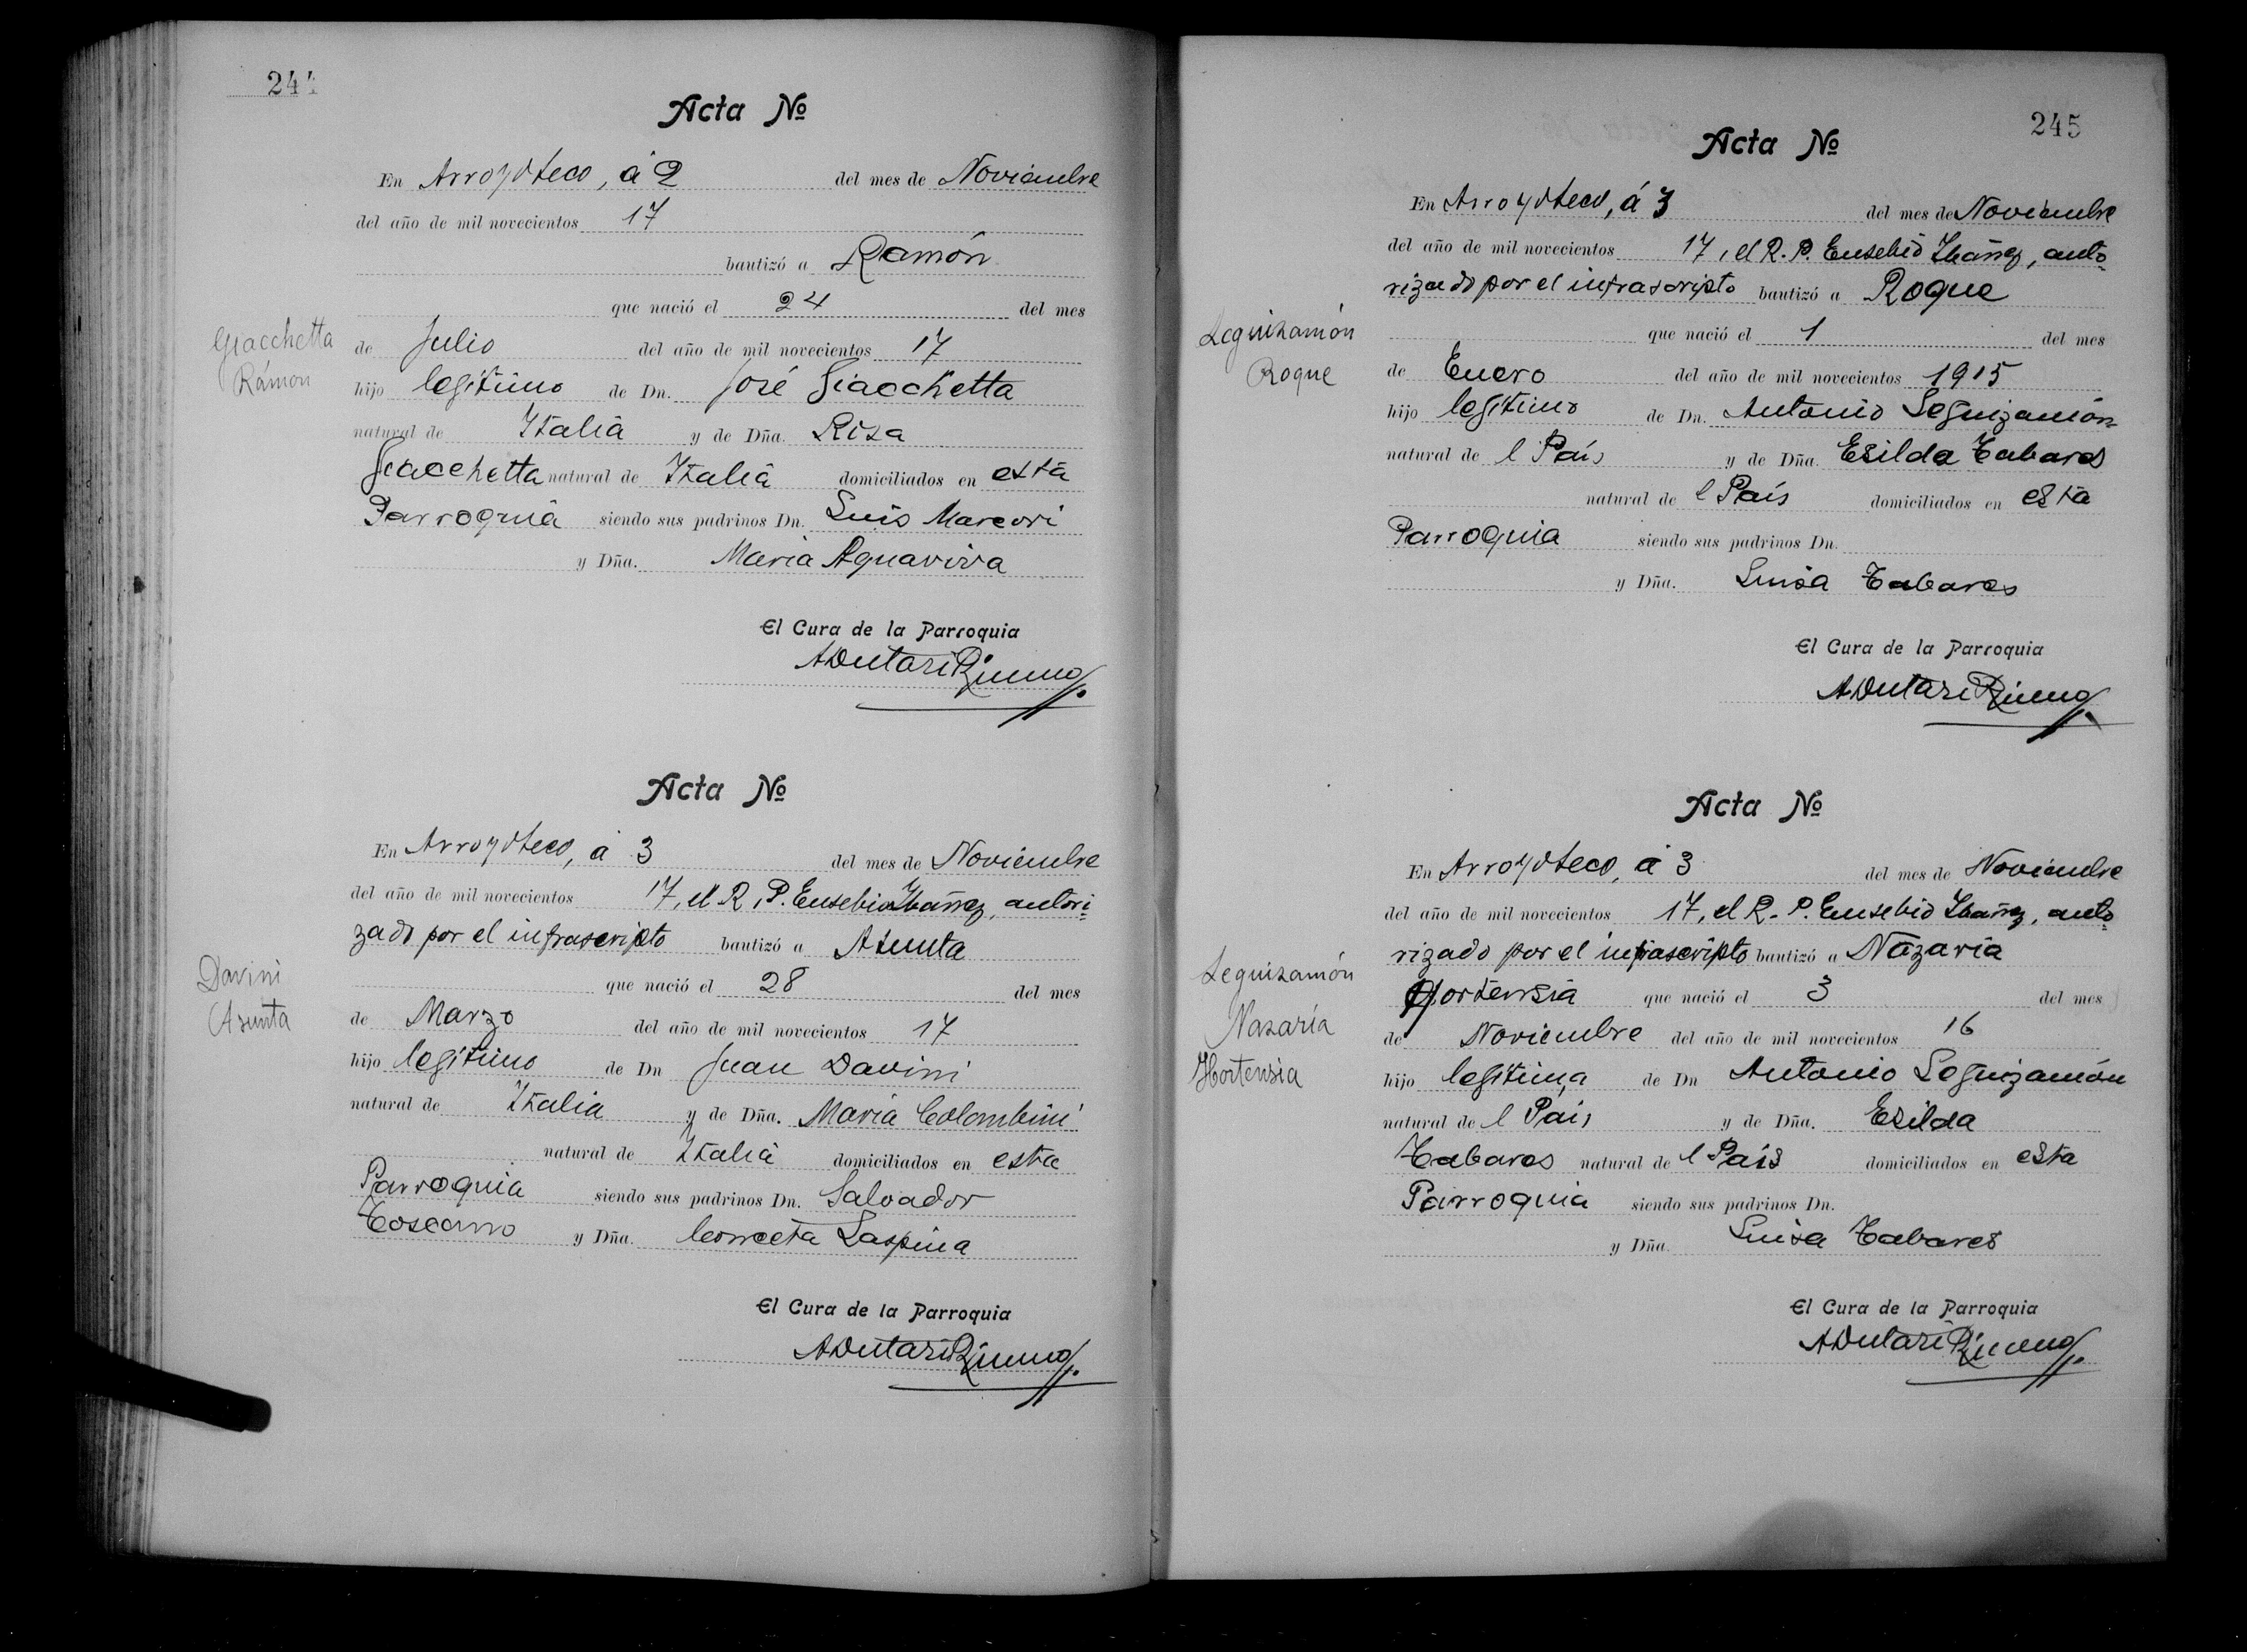 244
Acta Nº
En Arroyoteco, á 2 del mes de Noviembre
del año de mil novecientos 17
bautizó a Ramón
que nació el 24 del mes
Giacchetta
Rámon
de Julio del año de mil novecientos 17
hijo legítimo de Dn. José Giacchetta
natural de Italia y de Dña. Risa
Giacchetta natural de Italia domiciliados en esta
Parroquia siendo sus padrinos Dn. Luis Marcori
y Dña. Maria Aquaviva
El Cura de la Parroquia
Acta Nº
En Arroyoteco, á 3 del mes de Noviembre
del año de mil novecientos 17, el R. P. Eusebio Ibañez, autori-
zado por el infrascripto bautizó a Asunta
que nació el 28 del mes
Davini
Asunta
de Marzo del año de mil novecientos 17
hijo legítimo de Dn Juan Davini
natural de Italia y de Dña. Maria Colombini
natural de Italia domiciliados en esta
Parroquia siendo sus padrinos Dn. Salvador
Toscano y Dña. Conceta Laspina
El Cura de la Parroquia
245
Acta Nº
En Arroyoteco, á 3 del mes de Noviembre
del año de mil novecientos 17, el R. P. Eusebio Ibañez, auto-
rizado por el infrascripto bautizó a Roque
que nació el 1 del mes
Leguizamón
Roque
de Enero del año de mil novecientos 1915
hijo legítimo de Dn. Antonio Leguizamón
natural de l País y de Dña. Esilda Tabares
natural de l País domiciliados en esta
Parroquia siendo sus padrinos Dn.
y Dña. Luisa Tabares
El Cura de la Parroquia
Acta Nº
En Arroyoteco, á 3 del mes de Noviembre
del año de mil novecientos 17, el R. P. Eusebio Ibañez, auto-
rizado por el infrascripto bautizó a Nazaria
Hortensia que nació el 3 del mes
Leguizamón
Nazaría
Hortensia
de Noviembre del año de mil novecientos 16
hijo legítima de Dn Antonio Leguizamón
natural de l País y de Dña. Esilda
Tabares natural de l País domiciliados en esta
Parroquia siendo sus padrinos Dn.
y Dña. Luisa Tabares
El Cura de la Parroquia